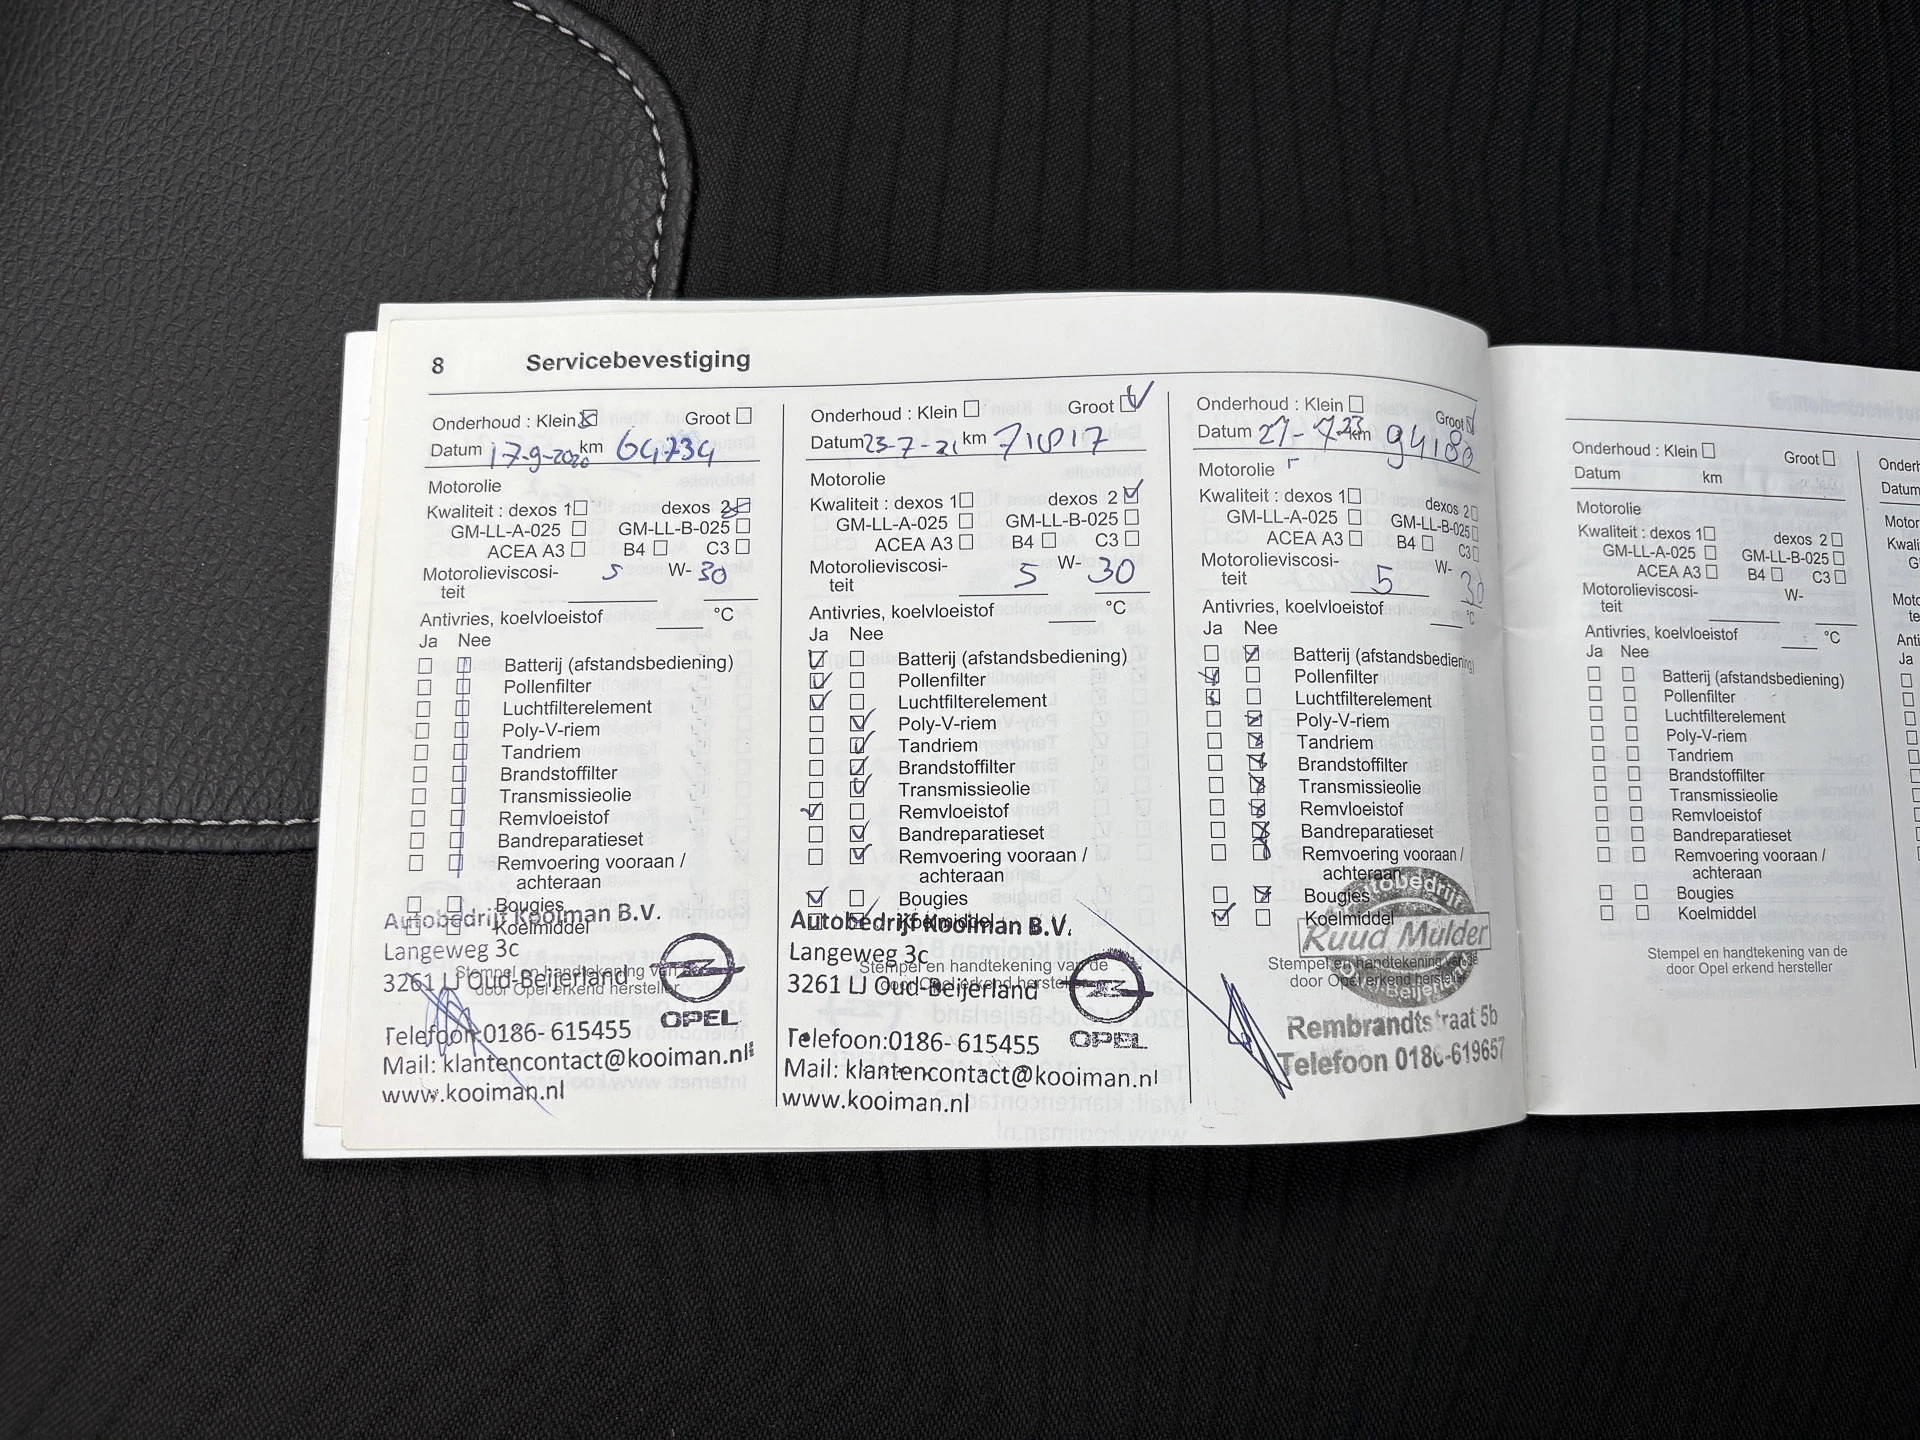 8 Servicebevestiging
Onderhoud : Klein Groot
Datum 17-9-2020 km 64734
Motorolie
Kwaliteit : dexos 1 dexos 2
GM-LL-A-025 GM-LL-B-025
ACEA A3 B4 C3
Motorolieviscosi-
teit 5 W- 30
Antivries, koelvloeistof °C
Ja Nee
Batterij (afstandsbediening)
Pollenfilter
Luchtfilterelement
Poly-V-riem
Tandriem
Brandstoffilter
Transmissieolie
Remvloeistof
Bandreparatieset
Remvoering vooraan /
achteraan
Bougies
Koelmiddel
Stempel en handtekening van
door Opel erkend hersteller
Autobedrijf Kooiman B.V.
Langeweg 3c
3261 LJ Oud-Beijerland
OPEL
Telefoon:0186- 615455
Mail: klantencontact@kooiman.nl
www.kooiman.nl
Onderhoud : Klein Groot
Datum 23-7-21 km
Motorolie
Kwaliteit : dexos 1 dexos 2
GM-LL-A-025 GM-LL-B-025
ACEA A3 B4 C3
Motorolieviscosi-
teit 5 W- 30
Antivries, koelvloeistof °C
Ja Nee
Batterij (afstandsbediening)
Pollenfilter
Luchtfilterelement
Poly-V-riem
Tandriem
Brandstoffilter
Transmissieolie
Remvloeistof
Bandreparatieset
Remvoering vooraan /
achteraan
Bougies
Koelmiddel
Stempel en handtekening van de
door Opel erkend hersteller
Autobedrijf Kooiman B.V.
Langeweg 3c
3261 LJ Oud-Beijerland
OPEL
Telefoon:0186- 615455
Mail: klantencontact@kooiman.nl
www.kooiman.nl
Onderhoud : Klein Groot
Datum km 94180
Motorolie
Kwaliteit : dexos 1 dexos 2
GM-LL-A-025 GM-LL-B-025
ACEA A3 B4 C3
Motorolieviscosi-
teit 5 W- 30
Antivries, koelvloeistof °C
Ja Nee
Batterij (afstandsbediening)
Pollenfilter
Luchtfilterelement
Poly-V-riem
Tandriem
Brandstoffilter
Transmissieolie
Remvloeistof
Bandreparatieset
Remvoering vooraan /
achteraan
Bougies
Koelmiddel
Stempel en handtekening van de
door Opel erkend hersteller
Autobedrijf
Ruud Mulder
Oud-Beijerland
Rembrandtstraat 5b
Telefoon 0186-619657
Onderhoud : Klein Groot
Datum km
Motorolie
Kwaliteit : dexos 1 dexos 2
GM-LL-A-025 GM-LL-B-025
ACEA A3 B4 C3
Motorolieviscosi-
teit W-
Antivries, koelvloeistof °C
Ja Nee
Batterij (afstandsbediening)
Pollenfilter
Luchtfilterelement
Poly-V-riem
Tandriem
Brandstoffilter
Transmissieolie
Remvloeistof
Bandreparatieset
Remvoering vooraan /
achteraan
Bougies
Koelmiddel
Stempel en handtekening van de
door Opel erkend hersteller